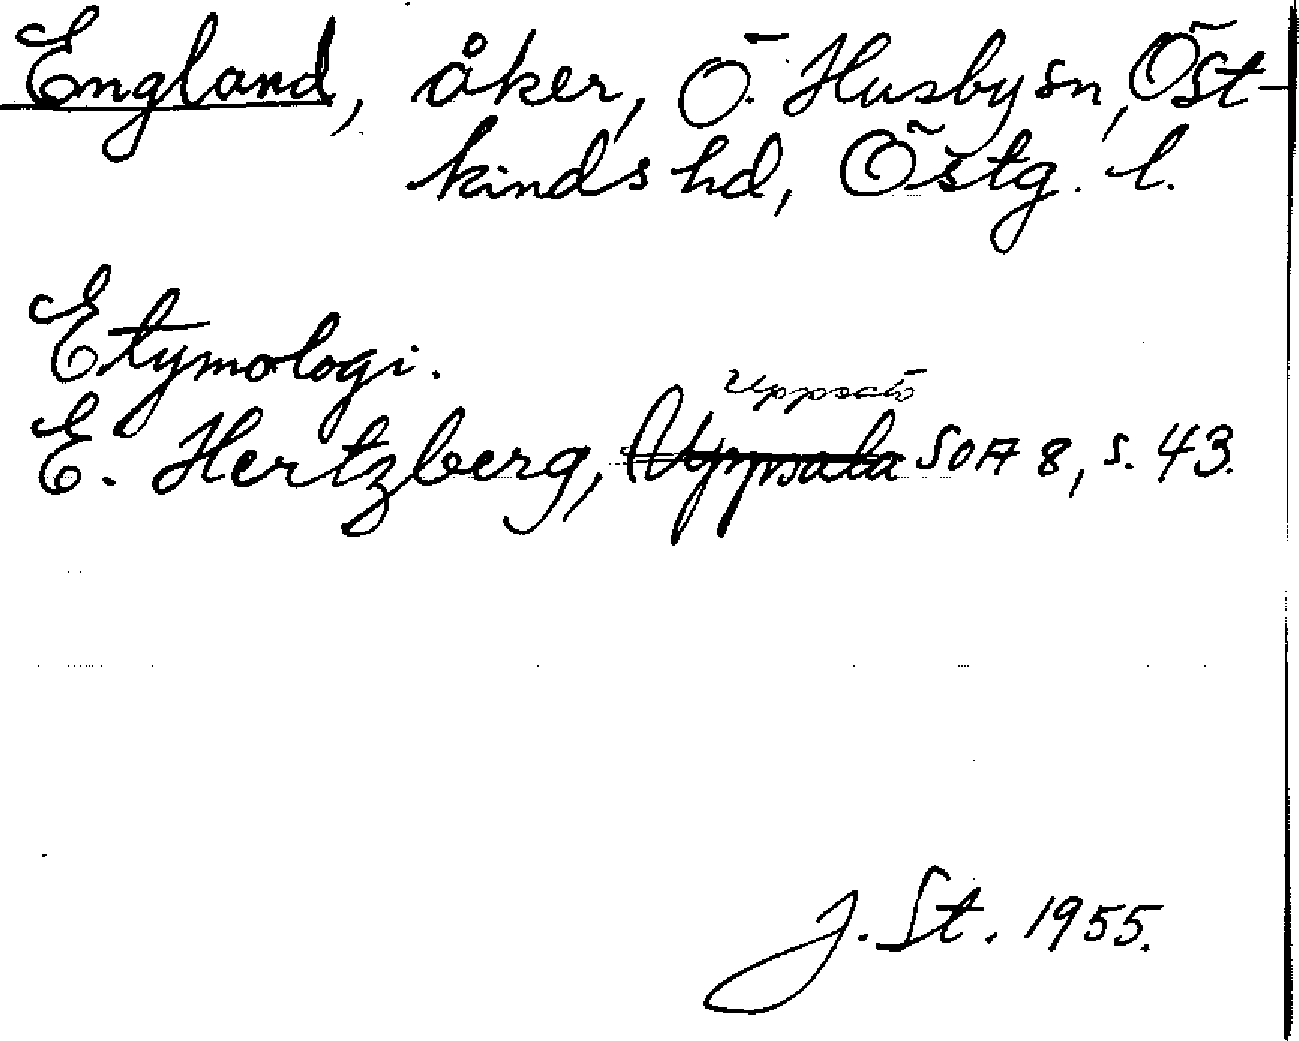 England, åker, Ö. Husby sn, Öst-
kinds hd, Östg. l.
Etymologi.
Uppsats
E. Hertzberg, Uppsala SOA 8, s. 43.
J. St. 1955.